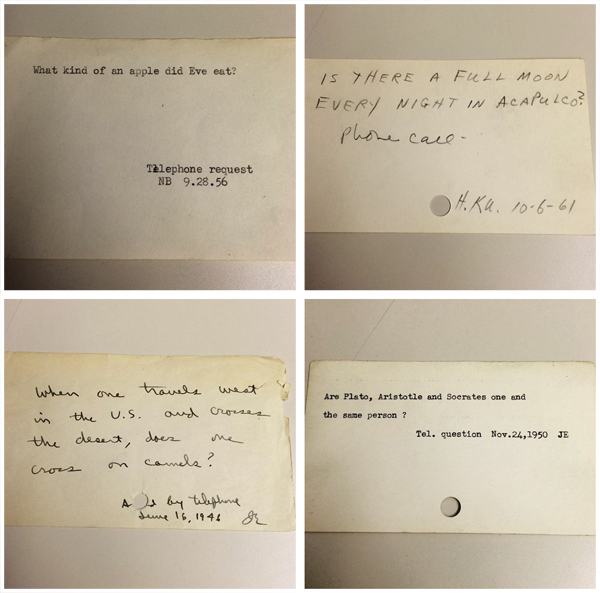 What kind of an apple did Eve eat?
Telephone request
NB 9.28.56
IS THERE A FULL MOON
EVERY NIGHT IN ACAPULCO?
Phone call-
H.KU. 10-6-61
When one travels west
in the U.S. and crosses
the desert, does one
cross on camels?
by telephone
June 16, 1946
Are Plato, Aristotle and Socrates one and
the same person ?
Tel. question Nov.24,1950 JE